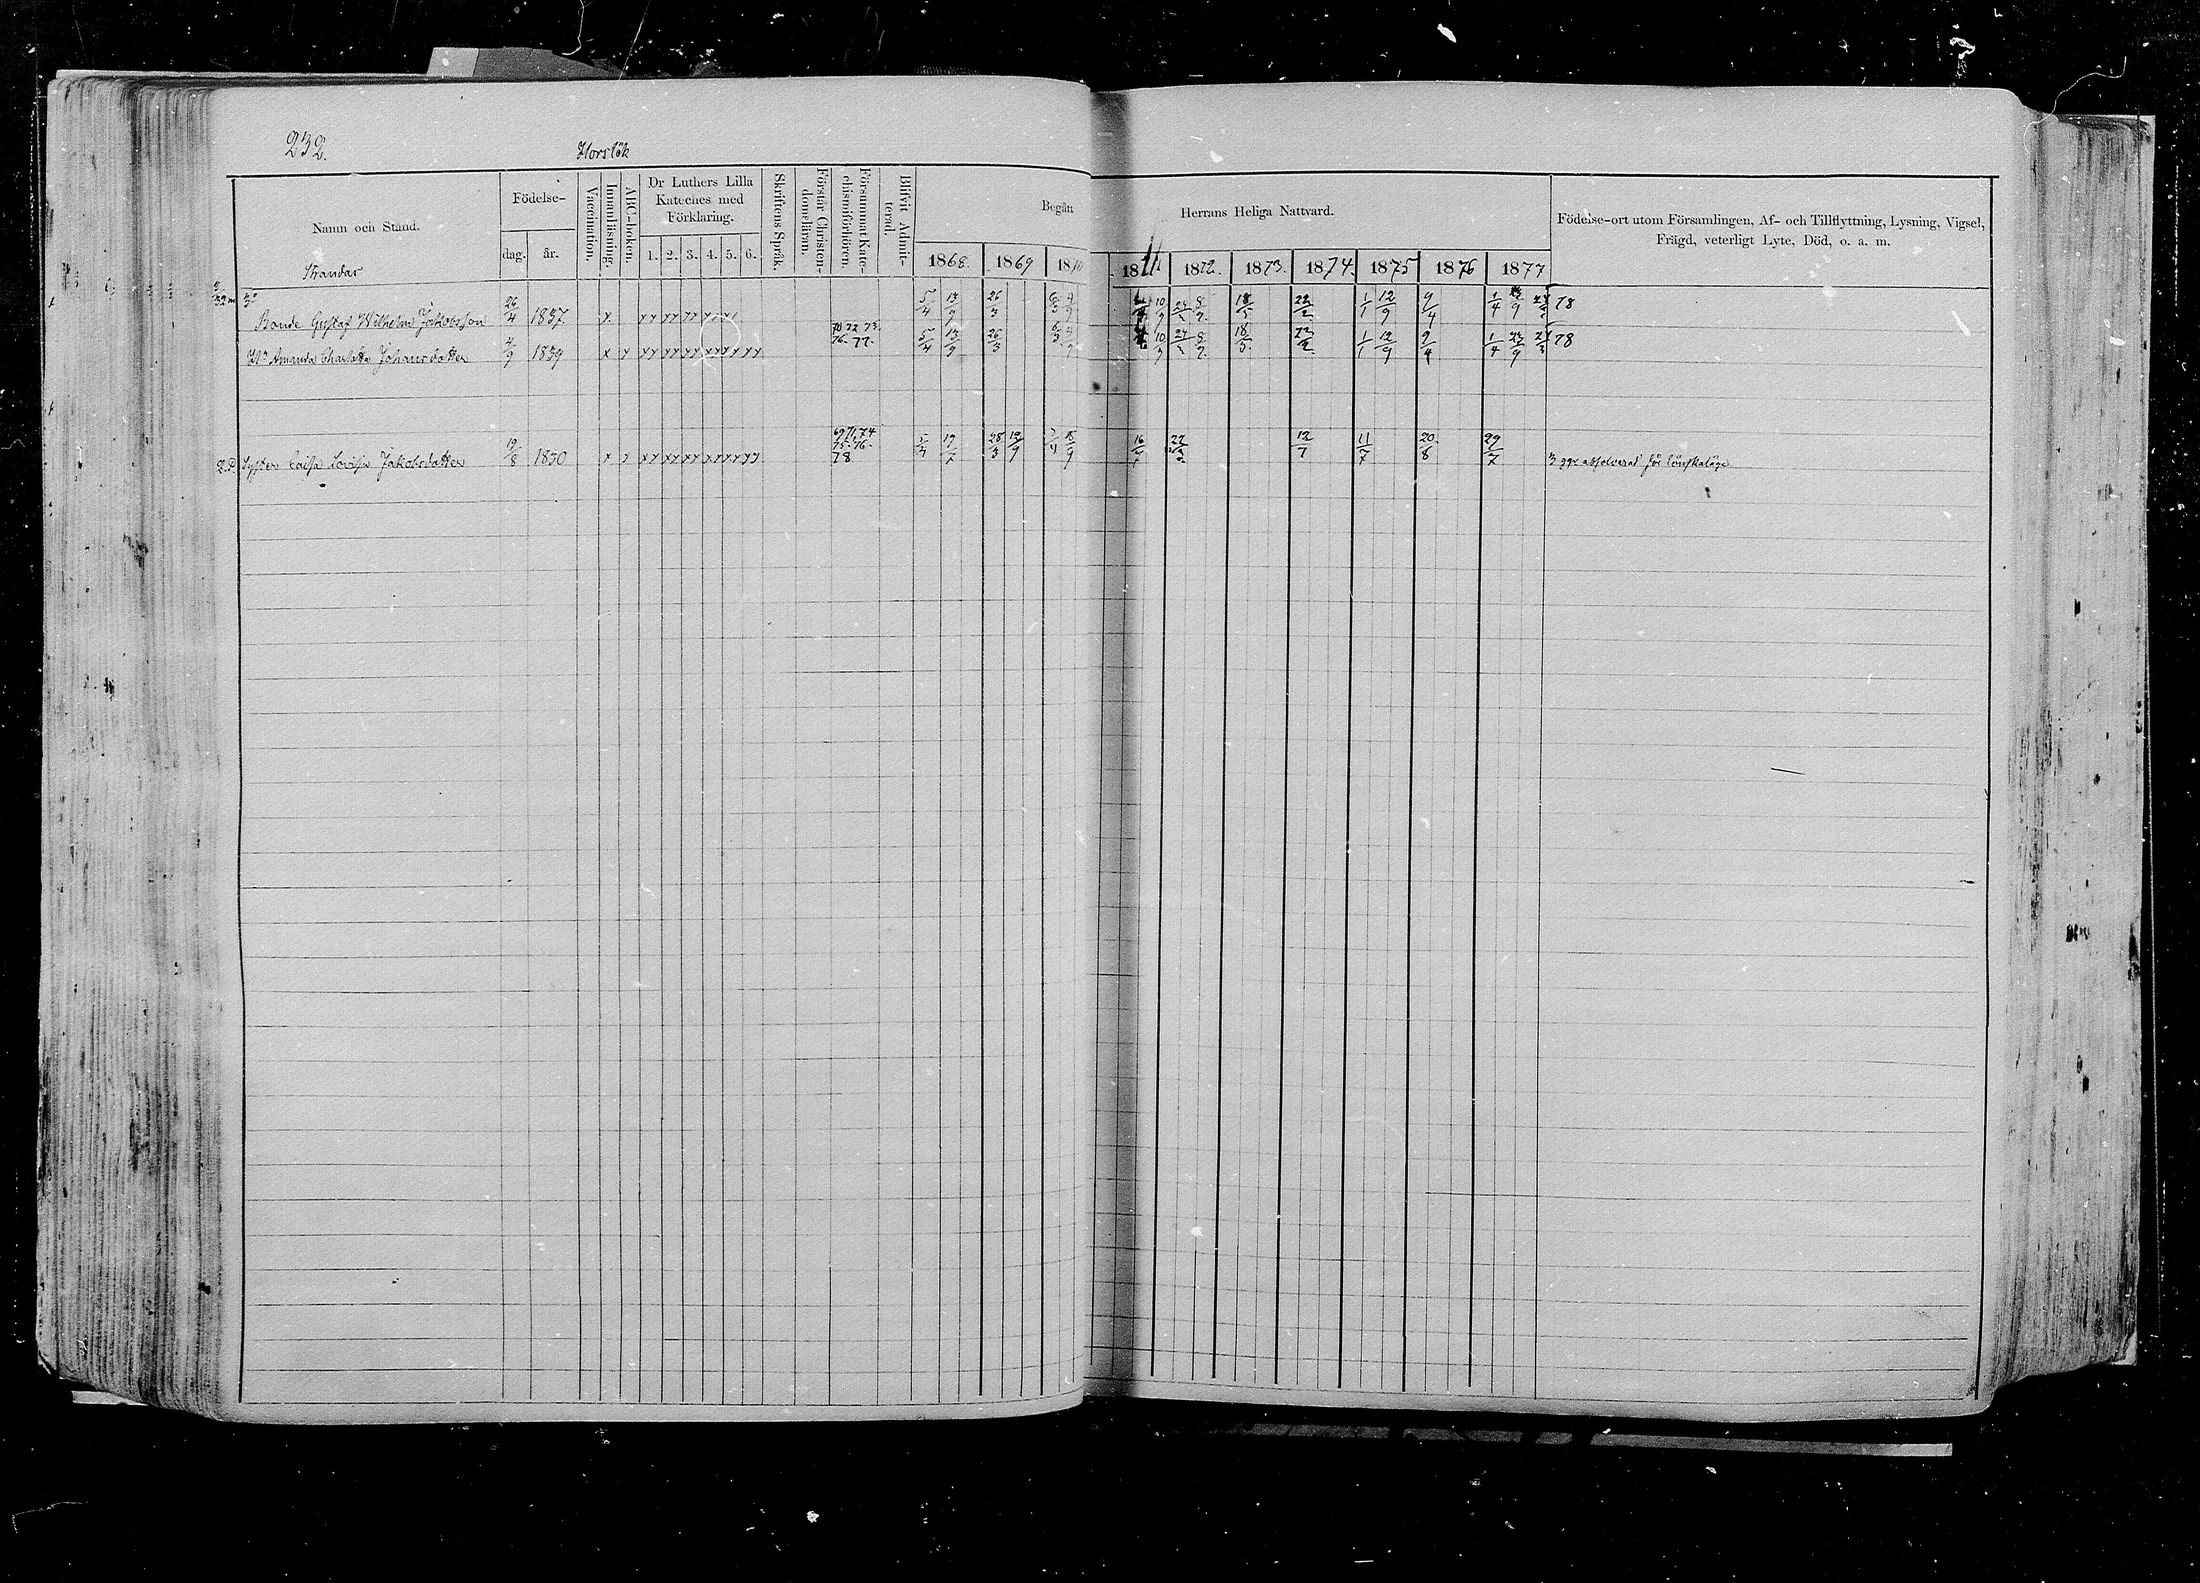 232.
Horslök
Namn och Stånd.
Födelse-
dag.
år.
Vaccination.
Innanläsning.
ABC-boken.
Dr Luthers Lilla
Kateches med
Förklaring.
1. 2. 3. 4. 5. 6.
Skriftens Språk.
Förstår Christen-
domsläran.
Försummat Kate-
chismiförhören.
Blifvit Admit-
terad.
Begått
Herrans Heliga Nattvard.
1868. 1869 1870 1871 1872. 1873. 1874. 1875 1876 1877
Födelse-ort utom Församlingen, Af- och Tillflyttning, Lysning, Vigsel,
Frägd, veterligt Lyte, Död, o. a. m.
Strandas
Bonde Gustaf Wilhelm Jakobsson 26/4 1837. 5/4 13/9 26/3 6/3 4/9 10/9 8/9 18/5 22/2 1/1 12/9 9/4 1/4 23/9 78
70 72 73.
76. 77.
Amanda Charlotta Johansdotter 4/9 1839 5/4 13/9 26/3 6/3 10/9 8/9 18/5 22/2 1/1 12/9 9/4 1/4 23/9 78
69 71, 74
75. 76.
78
Syster Caisa Lovisa Jakobsdotter 19/8 1830 19/7 28/3 19/9 18/9 16/7 12/7 11/7 20/8 29/7 3 ggr absolverad för lönskaläge